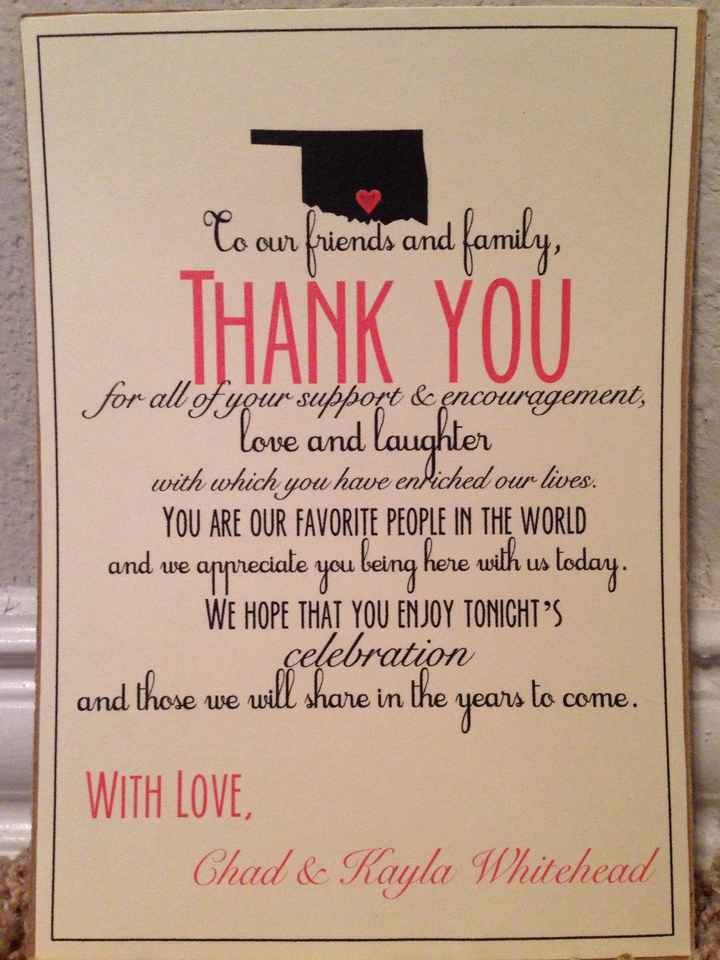 To our friends and family,
THANK YOU
for all of your support & encouragement,
love and laughter
with which you have enriched our lives.
YOU ARE OUR FAVORITE PEOPLE IN THE WORLD
and we appreciate you being here with us today.
WE HOPE THAT YOU ENJOY TONIGHT'S
celebration
and those we will share in the years to come.
WITH LOVE,
Chad & Kayla Whitehead